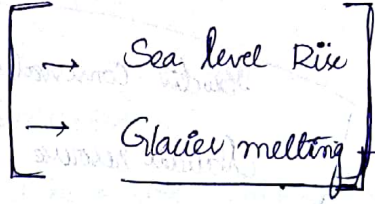 → Sea level Rise
→ Glacier melting